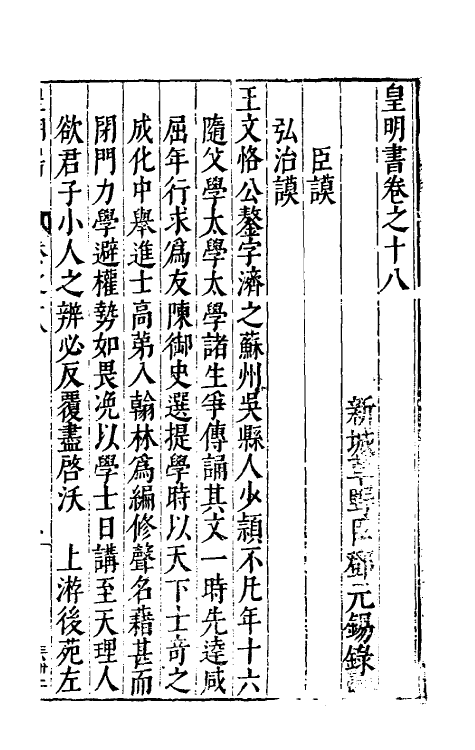 皇明書卷之十八
新城草野臣鄧元錫錄
臣謨
弘治謨
王文恪公鏊字濟之蘇州吳縣人少頴不凡年十六
隨父學太學太學諸生爭傳誦其文一時先達咸
屈年行求爲友陳御史選提學時以天下士竒之
成化中舉進士高弟入翰林爲編修聲名藉甚而
閉門力學避權勢如畏凂以學士日講至天理人
欲君子小人之辨必反覆盡啓沃 上游後苑左